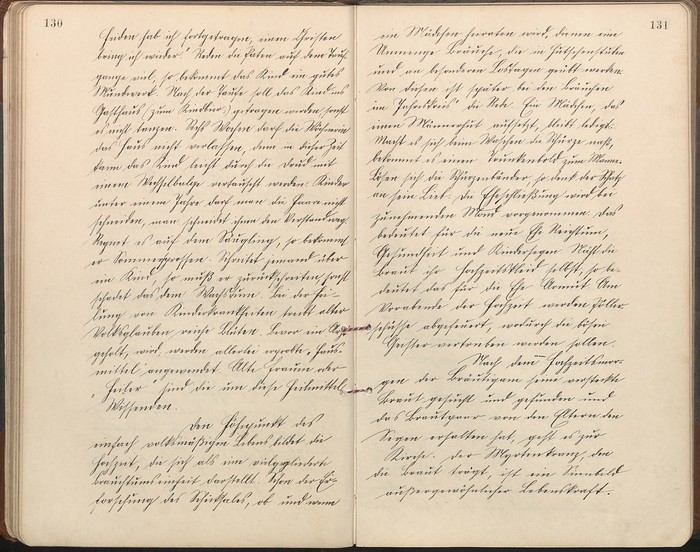 130
Heiden hab ich fortgetragen, einen Christen
bring ich wieder! Reden die Paten auf dem Tauf-
gange viel, so bekommt das Kind ein gutes
Mundwerk. Nach der Taufe soll das Kind ins
Gasthaus (zum Kindbier) getragen werden, sonst
es nicht tanzen. Sechs Wochen darf die Wöchnerin
das Haus nicht verlassen, denn in dieser Zeit
kann das Kind leicht durch die Drud mit
einem Wechselbalge vertauscht werden. Kinder
unter einem Jahre darf man die Haare nicht
schneiden, man schneidet ihnen den Verstand weg.
Regnet es auf den Säugling, so bekommt
er Sommersprossen. Schreitet jemand über
ein Kind, so muß er zurückschreiten, sonst
schadet das dem Wachstum. Bei der Hei-
lung von Kinderkrankheiten treibt alter
Volksglauben reiche Blüten. Bevor ein Arzt
geholt wird, werden allerlei erprobte Haus-
mittel angewendet. Alte Frauen oder
"Heiler" sind die um diese Heilmittel
Wissenden.
Den Höhepunkt des
einfach volksmäßigen Lebens bildet die
Hochzeit, die sich als eine vielgegliederte
Brauchtumseinheit darstellt. Schon der Er-
forschung des Schicksales, ob und wann
131
ein Mädchen heiraten wird, dienen eine
Unmenge Bräuche, die in
und an besonderen Lostagen geübt werden.
Von diesen ist später bei den Bräuchen
im Jahreskreis die Rede. Ein Mädchen, das
einen Männerhut aufsetzt, bleibt ledig.
Macht es sich beim Waschen die Schürze naß,
bekommt es einen Trunkenbold zum Manne.
Lösen sich die Schürzenbänder, so denkt der Schatz
an sein Lieb. Die Eheschließung wird bei
zunehmendem Mond vorgenommen. Das
bedeutet für die neue Ehe Reichtum,
Gesundheit und Kindersegen. Näht die
Braut ihr Hochzeitskleid selbst, so be-
deutet das für die Ehe Armut. Am
Vorabende der Hochzeit werden Böller-
schüsse abgefeuert, wodurch die bösen
Geister vertrieben werden sollen.
Nach dem Hochzeitsmor-
gen der Bräutigam seine versteckte
Braut gesucht und gefunden und
das Brautpaar von den Eltern den
Segen erhalten hat, geht es zur
Kirche. Der Myrtenkranz, den
die Braut trägt, ist ein Sinnbild
außergewöhnlicher Lebenskraft.